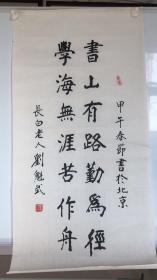 甲午春節書於北京
書山有路勤為徑
學海無涯苦作舟
長白老人劉魁武